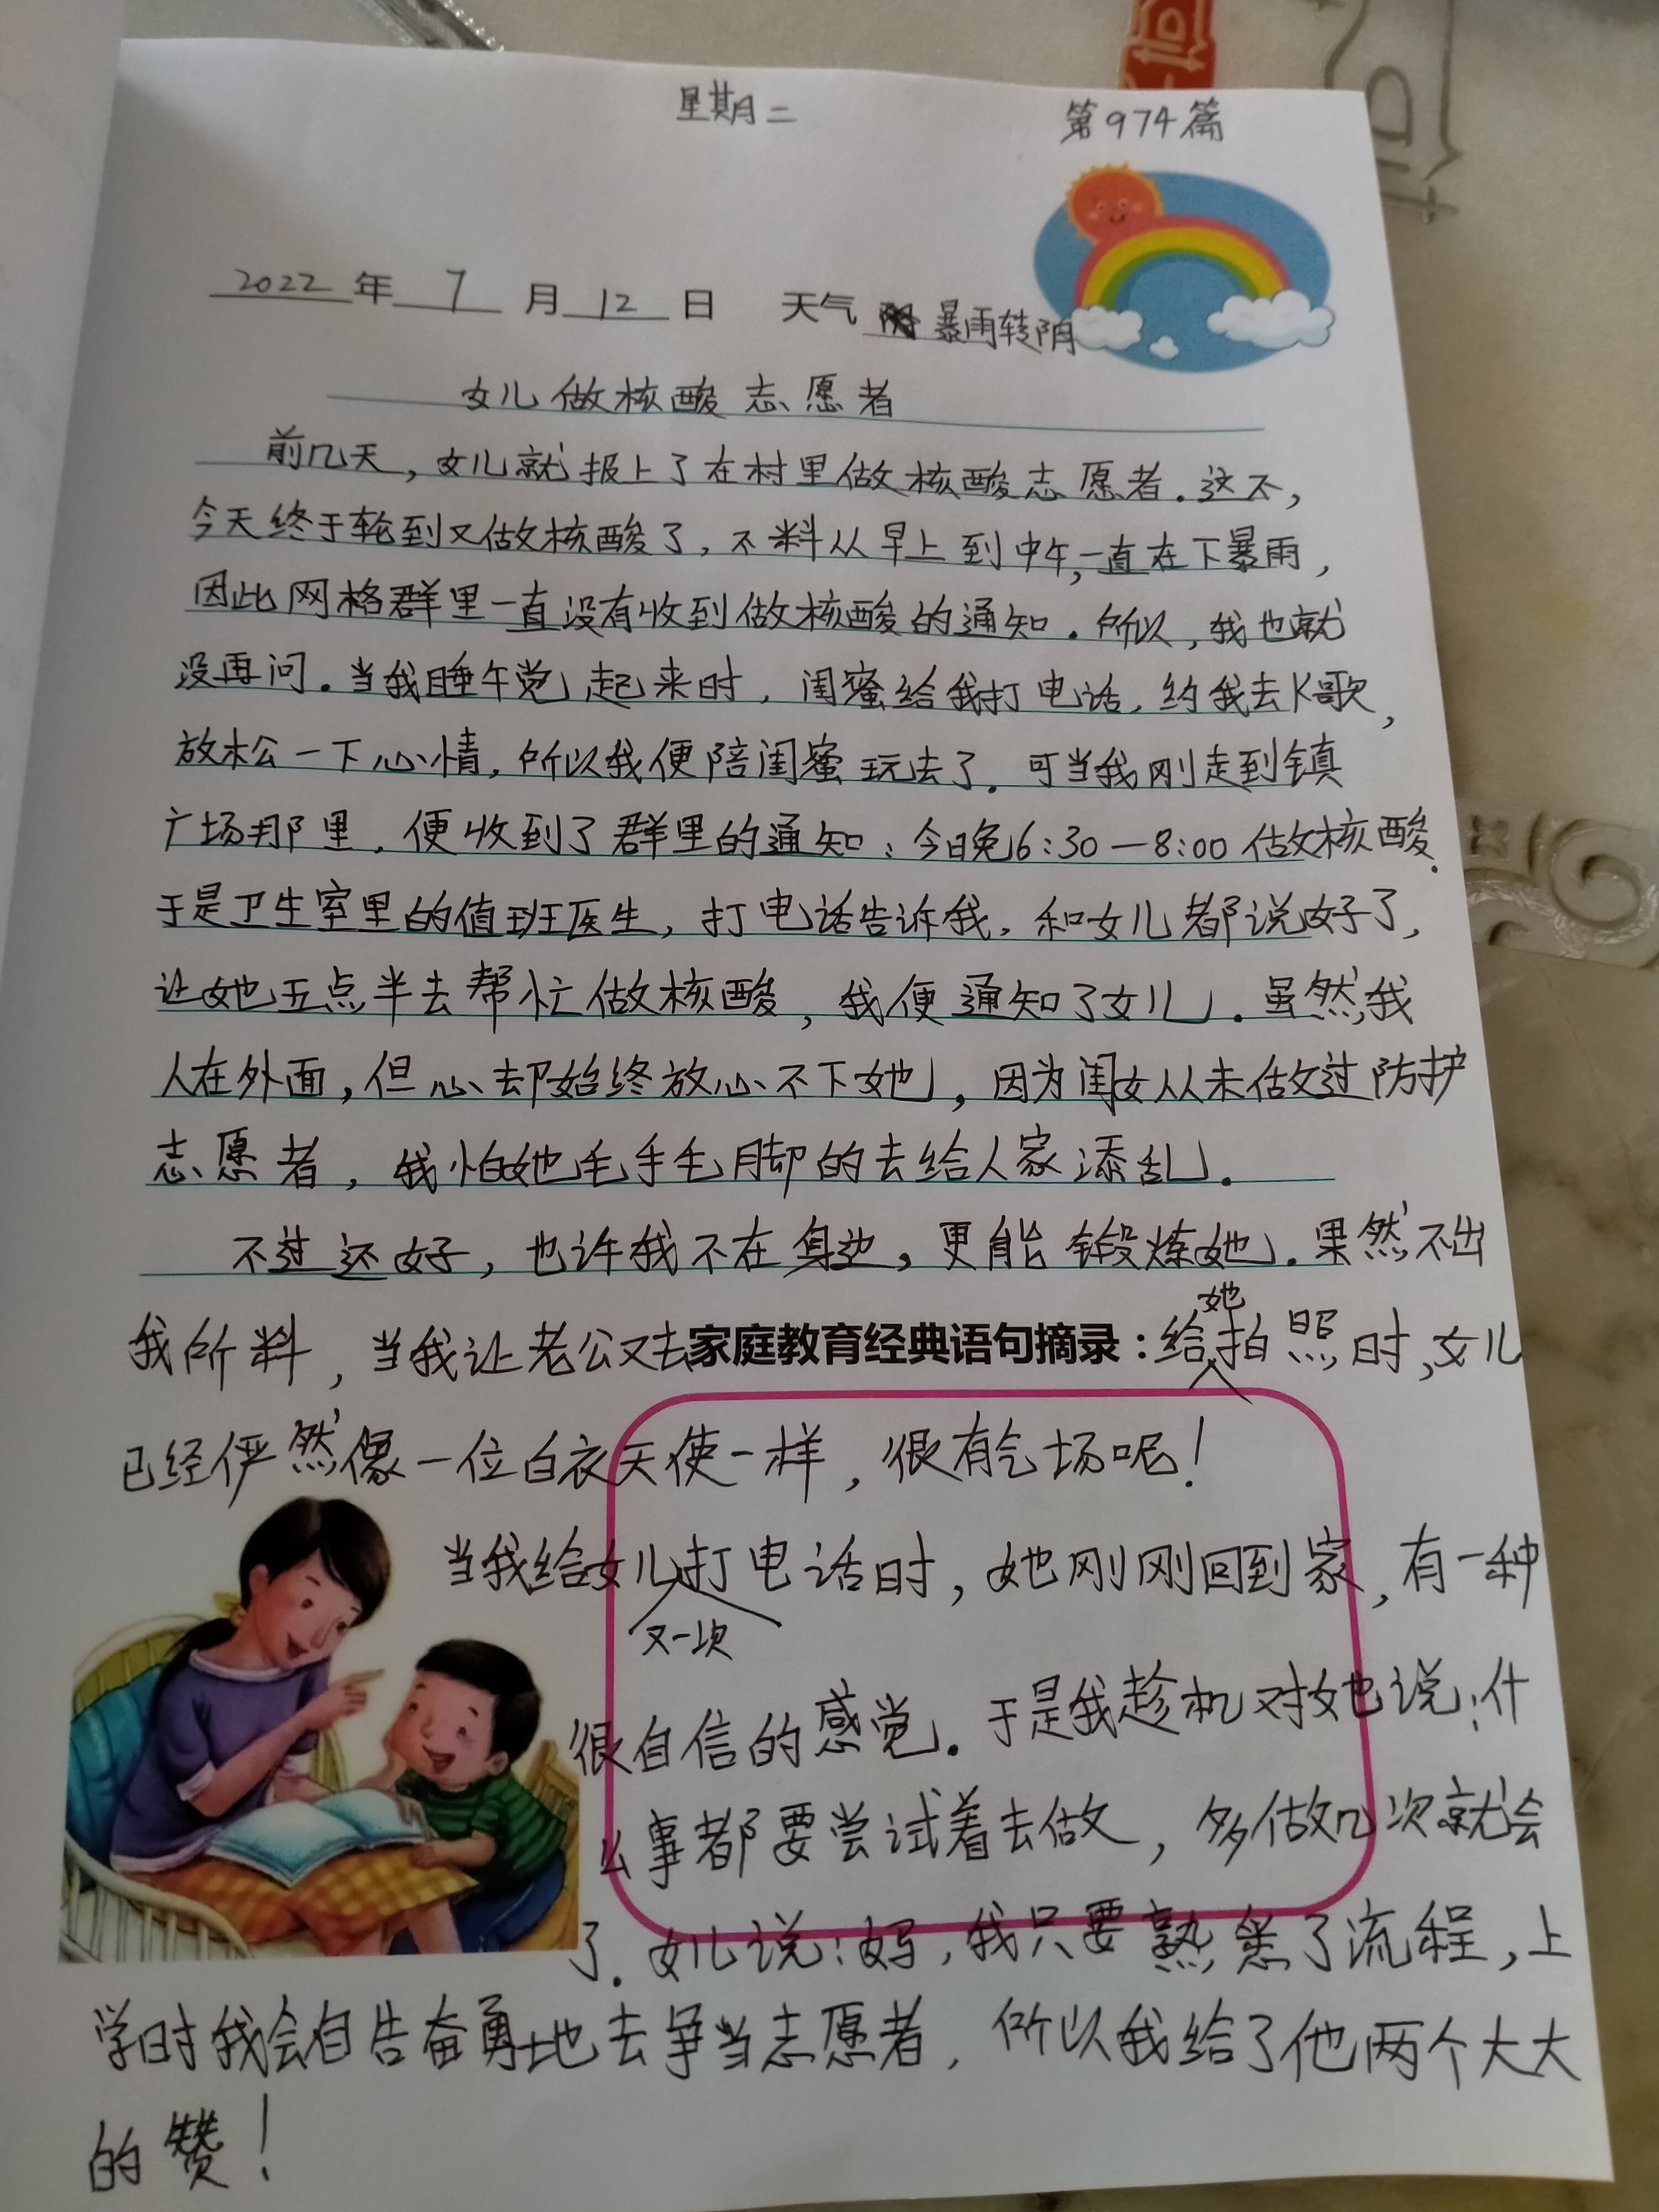 星期二 第974篇
2022年7月12日 天气 暴雨转阴
女儿做核酸志愿者
前几天，女儿就报上了在村里做核酸志愿者。这不，
今天终于轮到又做核酸了，不料从早上到中午，一直在下暴雨，
因此网格群里一直没有收到做核酸的通知。所以，我也就
没再问。当我睡午觉起来时，闺蜜给我打电话，约我去K歌，
放松一下心情，所以我便陪闺蜜玩去了。可当我刚走到镇
广场那里，便收到了群里的通知：今日晚6:30—8:00做核酸。
于是卫生室里的值班医生，打电话告诉我，和女儿都说好了，
让她五点半去帮忙做核酸，我便通知了女儿。虽然，我
人在外面，但心却始终放心不下她，因为闺女从未做过防护
志愿者，我怕她毛手毛脚的去给人家添乱。
不过还好，也许我不在身边，更能锻炼她。果然，不出
我所料，当我让老公又去家庭教育经典语句摘录：给她拍照时，女儿
已经俨然像一位白衣天使一样，很有气场呢！
当我给女儿又一次打电话时，她刚刚回到家，有一种
很自信的感觉。于是我趁机对她说：什
么事都要尝试着去做，多做几次就会
了。女儿说：妈，我只要熟悉了流程，上
学时我会自告奋勇地去争当志愿者，所以我给了他两个大大
的赞！